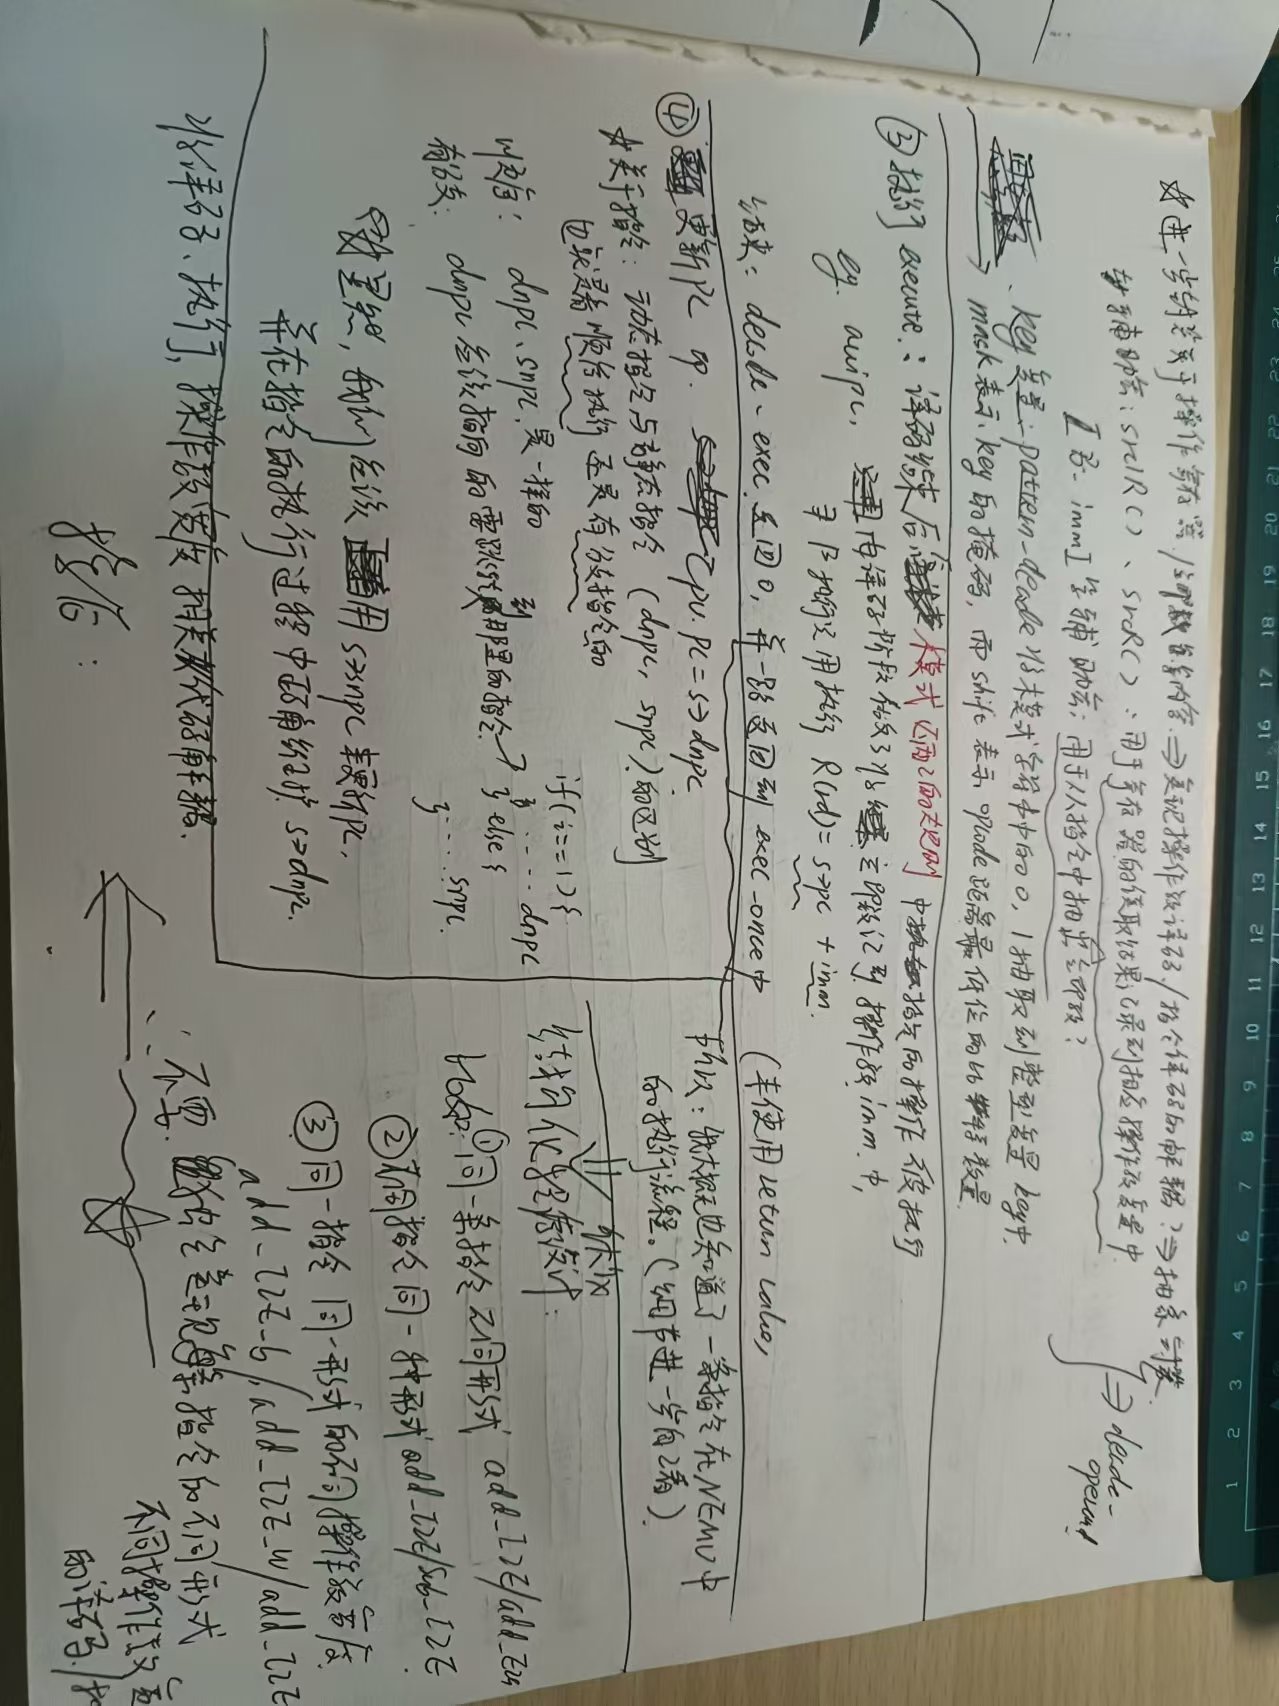 1 2 3 4 5 6 7 8 9 10 11 12 13 14 15 16 17 18 19 20 21 22 23 24
☆进一步封装关于操作寄存器/立即数等内容.⇒实现操作数译码/指令译码的解耦?⇒抽象封装
辅助宏: src1R()、srcR():用于寄存器的读取结果记录到相应操作数变量中
⇒ decode-operand
immI等辅助宏;用于从指令中抽出立即数?
key变量:pattern-decode将模式字符串中的0,1抽取到整型变量key中,
mask表示key的掩码,而shift表示opcode距离最低位的比特数量.
③执行execute.:译码结束后 模式匹配的规则 中指定的操作被执行
eg. auipc, 译码阶段做了将 立即数记到操作数imm.中,
执行只用执行 R(rd)= s->pc + imm.
结束: decode-exec返回0,并一路返回到exec-once中 (未使用return value)
④更新PC 即. cpu.pc=s->dnpc.
☆关于指令:动态指令与静态指令(dnpc, snpc)的区别
也就是看顺序执行还是有分支指令的
顺序: dnpc、snpc.是一样的
有分支: dnpc应该指向的要跳转到那里的指令 →
if(i==1){
..... dnpc
} else {
..... snpc.
}
☆显然,我们应该用s->snpc来更新PC,
并在指令的执行过程中正确维护s->dnpc.
所以:我大概也知道了一条指令在NEMU中
的执行流程。(细节进一步自己看).
优化
结构化程序设计:
比如:①同一条指令不同形式 add_I2E/add_E2G
②不同指令同一种形式add_I2E/sub_I2E
③同一指令 同一形式的不同操作数宽度
add-I2E-b/add-I2E_w/add_I2E
∴不要 独立实现每条指令的不同形式
不同操作数宽
的译码/执
将译码、执行,操作数宽度相关代码解耦.
接后: